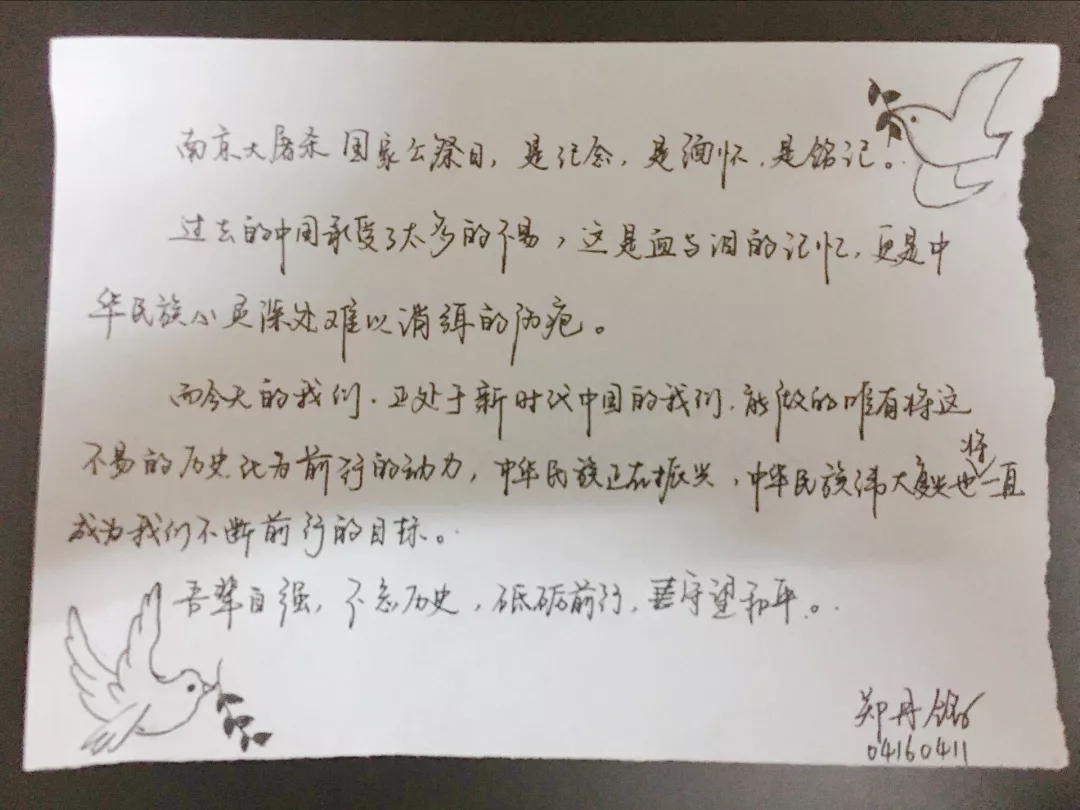 南京大屠杀国家公祭日，是纪念，是缅怀，是铭记。
过去的中国承受了太多的不易，这是血与泪的记忆，更是中
华民族心灵深处难以消弭的伤疤。
而今天的我们，正处于新时代中国的我们，能做的唯有将这
不易的历史化为前行的动力，中华民族正在振兴，中华民族伟大复兴也将一直
成为我们不断前行的目标。
吾辈自强，不忘历史，砥砺前行，守望和平。
郑丹铭
04160411